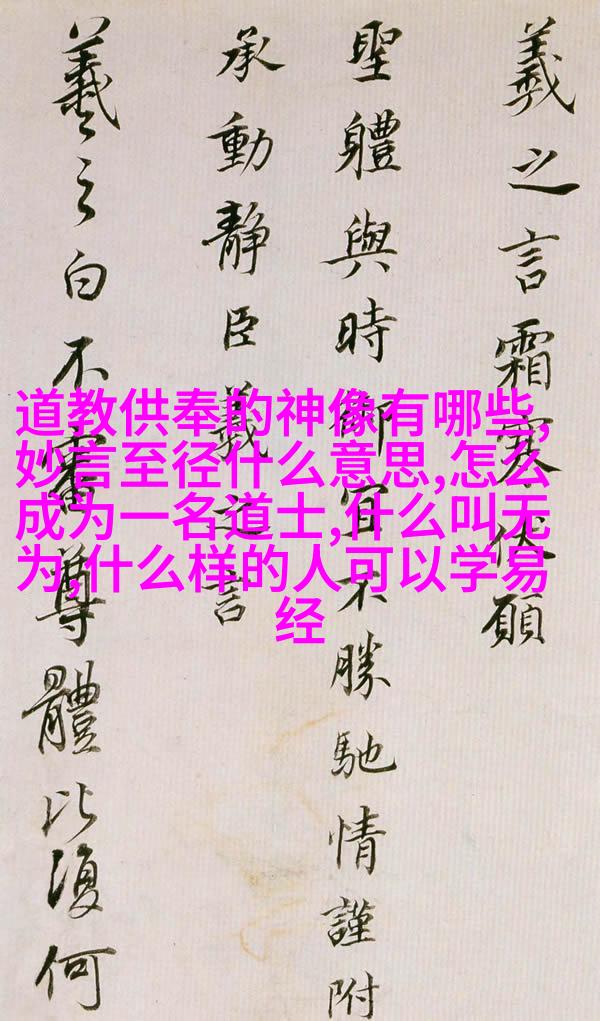 羲之言霜寒伏願
聖體與時御宜不勝馳情謹附
承動靜臣羲之言
羲之白不審尊體比復何
道教供奉的神像有哪些,
妙言至径什么意思,怎么
成为一名道士,什么叫无
为,什么样的人可以学易
经